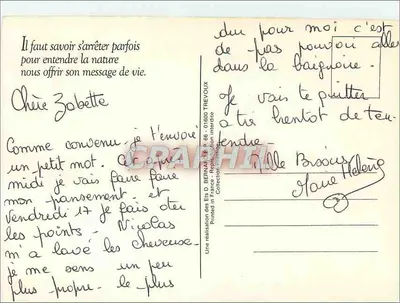 Il faut savoir s'arrêter parfois
pour entendre la nature
nous offrir son message de vie.
Chère Zabette
Comme convenu je t'envoie
un petit mot. Cet après
midi je vais faire faire
mon pansement et
vendredi 17 je fais oter
les points. Nicolas
m'a lavé les cheveux.
je me sens un peu
plus propre. le plus
Une réalisation des Ets D. BERNARD B.P. 66 - 01600 TREVOUX
Printed in France - Reproduction interdite
dur pour moi c'est
de pas pouvoir aller
dans la baignoire.
Je vais te quitter
a très bientot de t'en-
tendre.
Mille Bisous
Marie Hélène